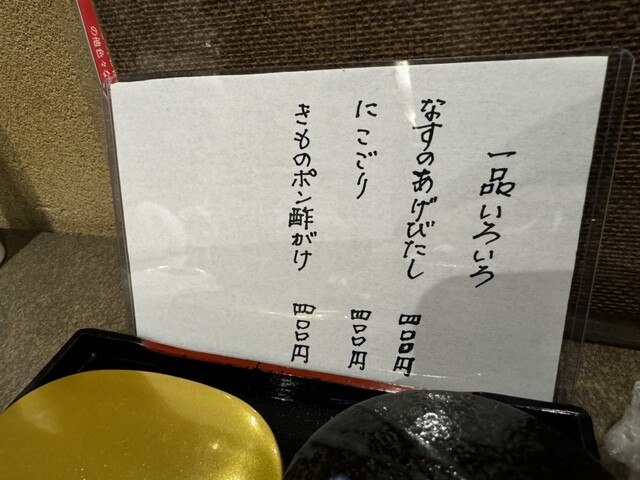 一品いろいろ
なすのあげびたし 四〇〇円
にこごり 四〇〇円
きものポン酢がけ 四〇〇円
の他色々な